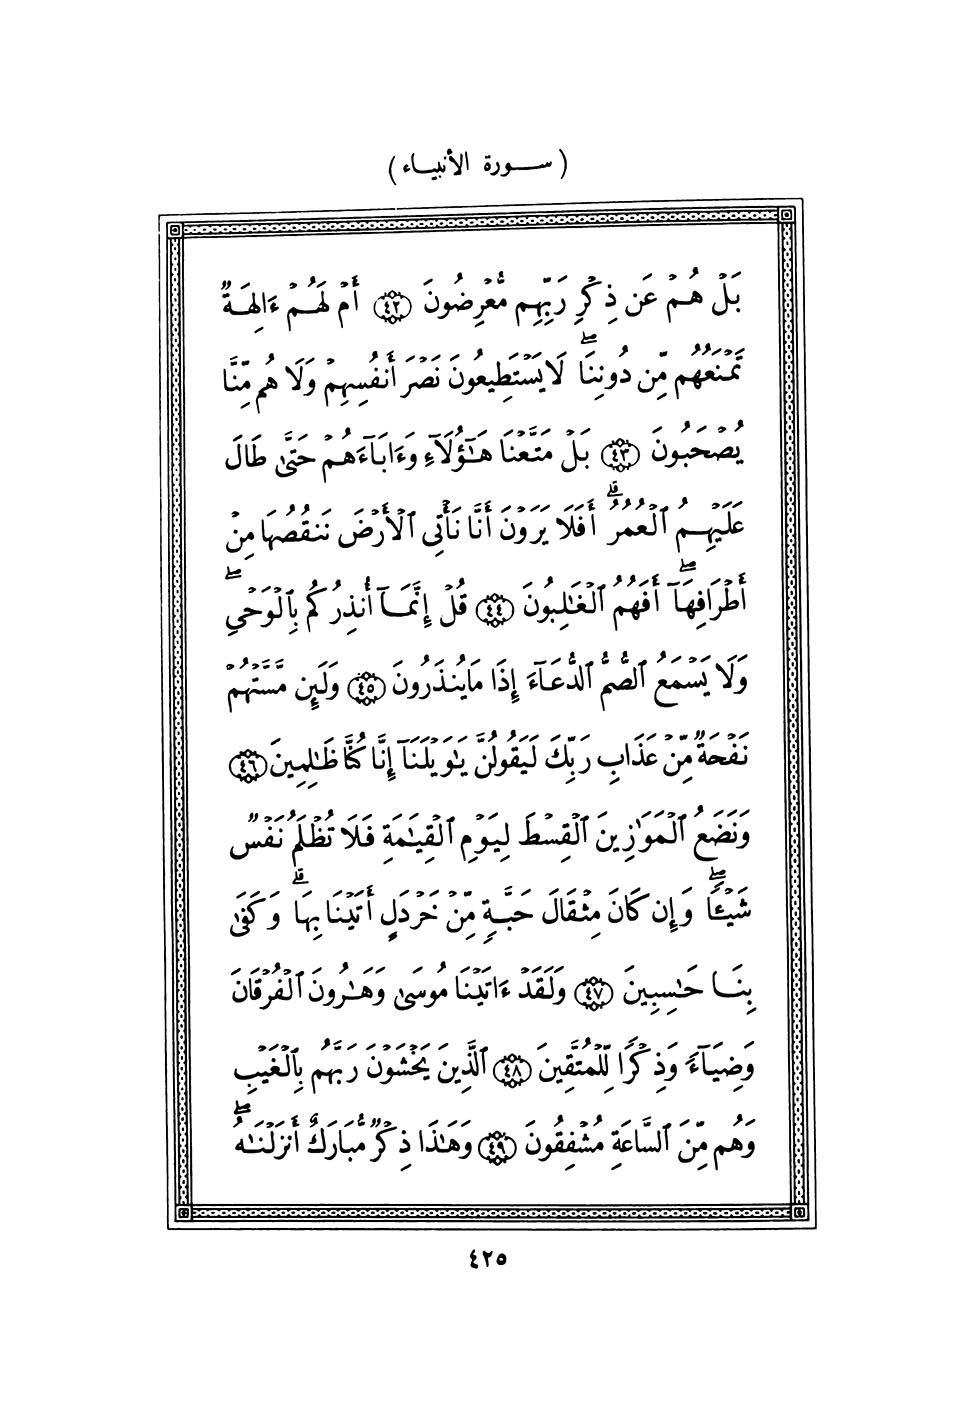 (ســورة الأنبياء)
بَلْ هُمْ عَن ذِكْرِ رَبِّهِم مُّعْرِضُونَ ﴿٤٢﴾ أَمْ لَهُمْ ءَالِهَةٌ
تَمْنَعُهُم مِّن دُونِنَاۖ لَا يَسْتَطِيعُونَ نَصْرَ أَنفُسِهِمْ وَلَا هُم مِّنَّا
يُصْحَبُونَ ﴿٤٣﴾ بَلْ مَتَّعْنَا هَٰٓؤُلَآءِ وَءَابَآءَهُمْ حَتَّىٰ طَالَ
عَلَيْهِمُ ٱلْعُمُرُۗ أَفَلَا يَرَوْنَ أَنَّا نَأْتِى ٱلْأَرْضَ نَنقُصُهَا مِنْ
أَطْرَافِهَآۖ أَفَهُمُ ٱلْغَٰلِبُونَ ﴿٤٤﴾ قُلْ إِنَّمَآ أُنذِرُكُم بِٱلْوَحْىِۖ
وَلَا يَسْمَعُ ٱلصُّمُّ ٱلدُّعَآءَ إِذَا مَا يُنذَرُونَ ﴿٤٥﴾ وَلَئِن مَّسَّتْهُمْ
نَفْحَةٌ مِّنْ عَذَابِ رَبِّكَ لَيَقُولُنَّ يَٰوَيْلَنَآ إِنَّا كُنَّا ظَٰلِمِينَ ﴿٤٦﴾
وَنَضَعُ ٱلْمَوَٰزِينَ ٱلْقِسْطَ لِيَوْمِ ٱلْقِيَٰمَةِ فَلَا تُظْلَمُ نَفْسٌ
شَيْـًٔاۖ وَإِن كَانَ مِثْقَالَ حَبَّةٍ مِّنْ خَرْدَلٍ أَتَيْنَا بِهَاۗ وَكَفَىٰ
بِنَا حَٰسِبِينَ ﴿٤٧﴾ وَلَقَدْ ءَاتَيْنَا مُوسَىٰ وَهَٰرُونَ ٱلْفُرْقَانَ
وَضِيَآءً وَذِكْرًا لِّلْمُتَّقِينَ ﴿٤٨﴾ ٱلَّذِينَ يَخْشَوْنَ رَبَّهُم بِٱلْغَيْبِ
وَهُم مِّنَ ٱلسَّاعَةِ مُشْفِقُونَ ﴿٤٩﴾ وَهَٰذَا ذِكْرٌ مُّبَارَكٌ أَنزَلْنَٰهُۖ
٤٢٥